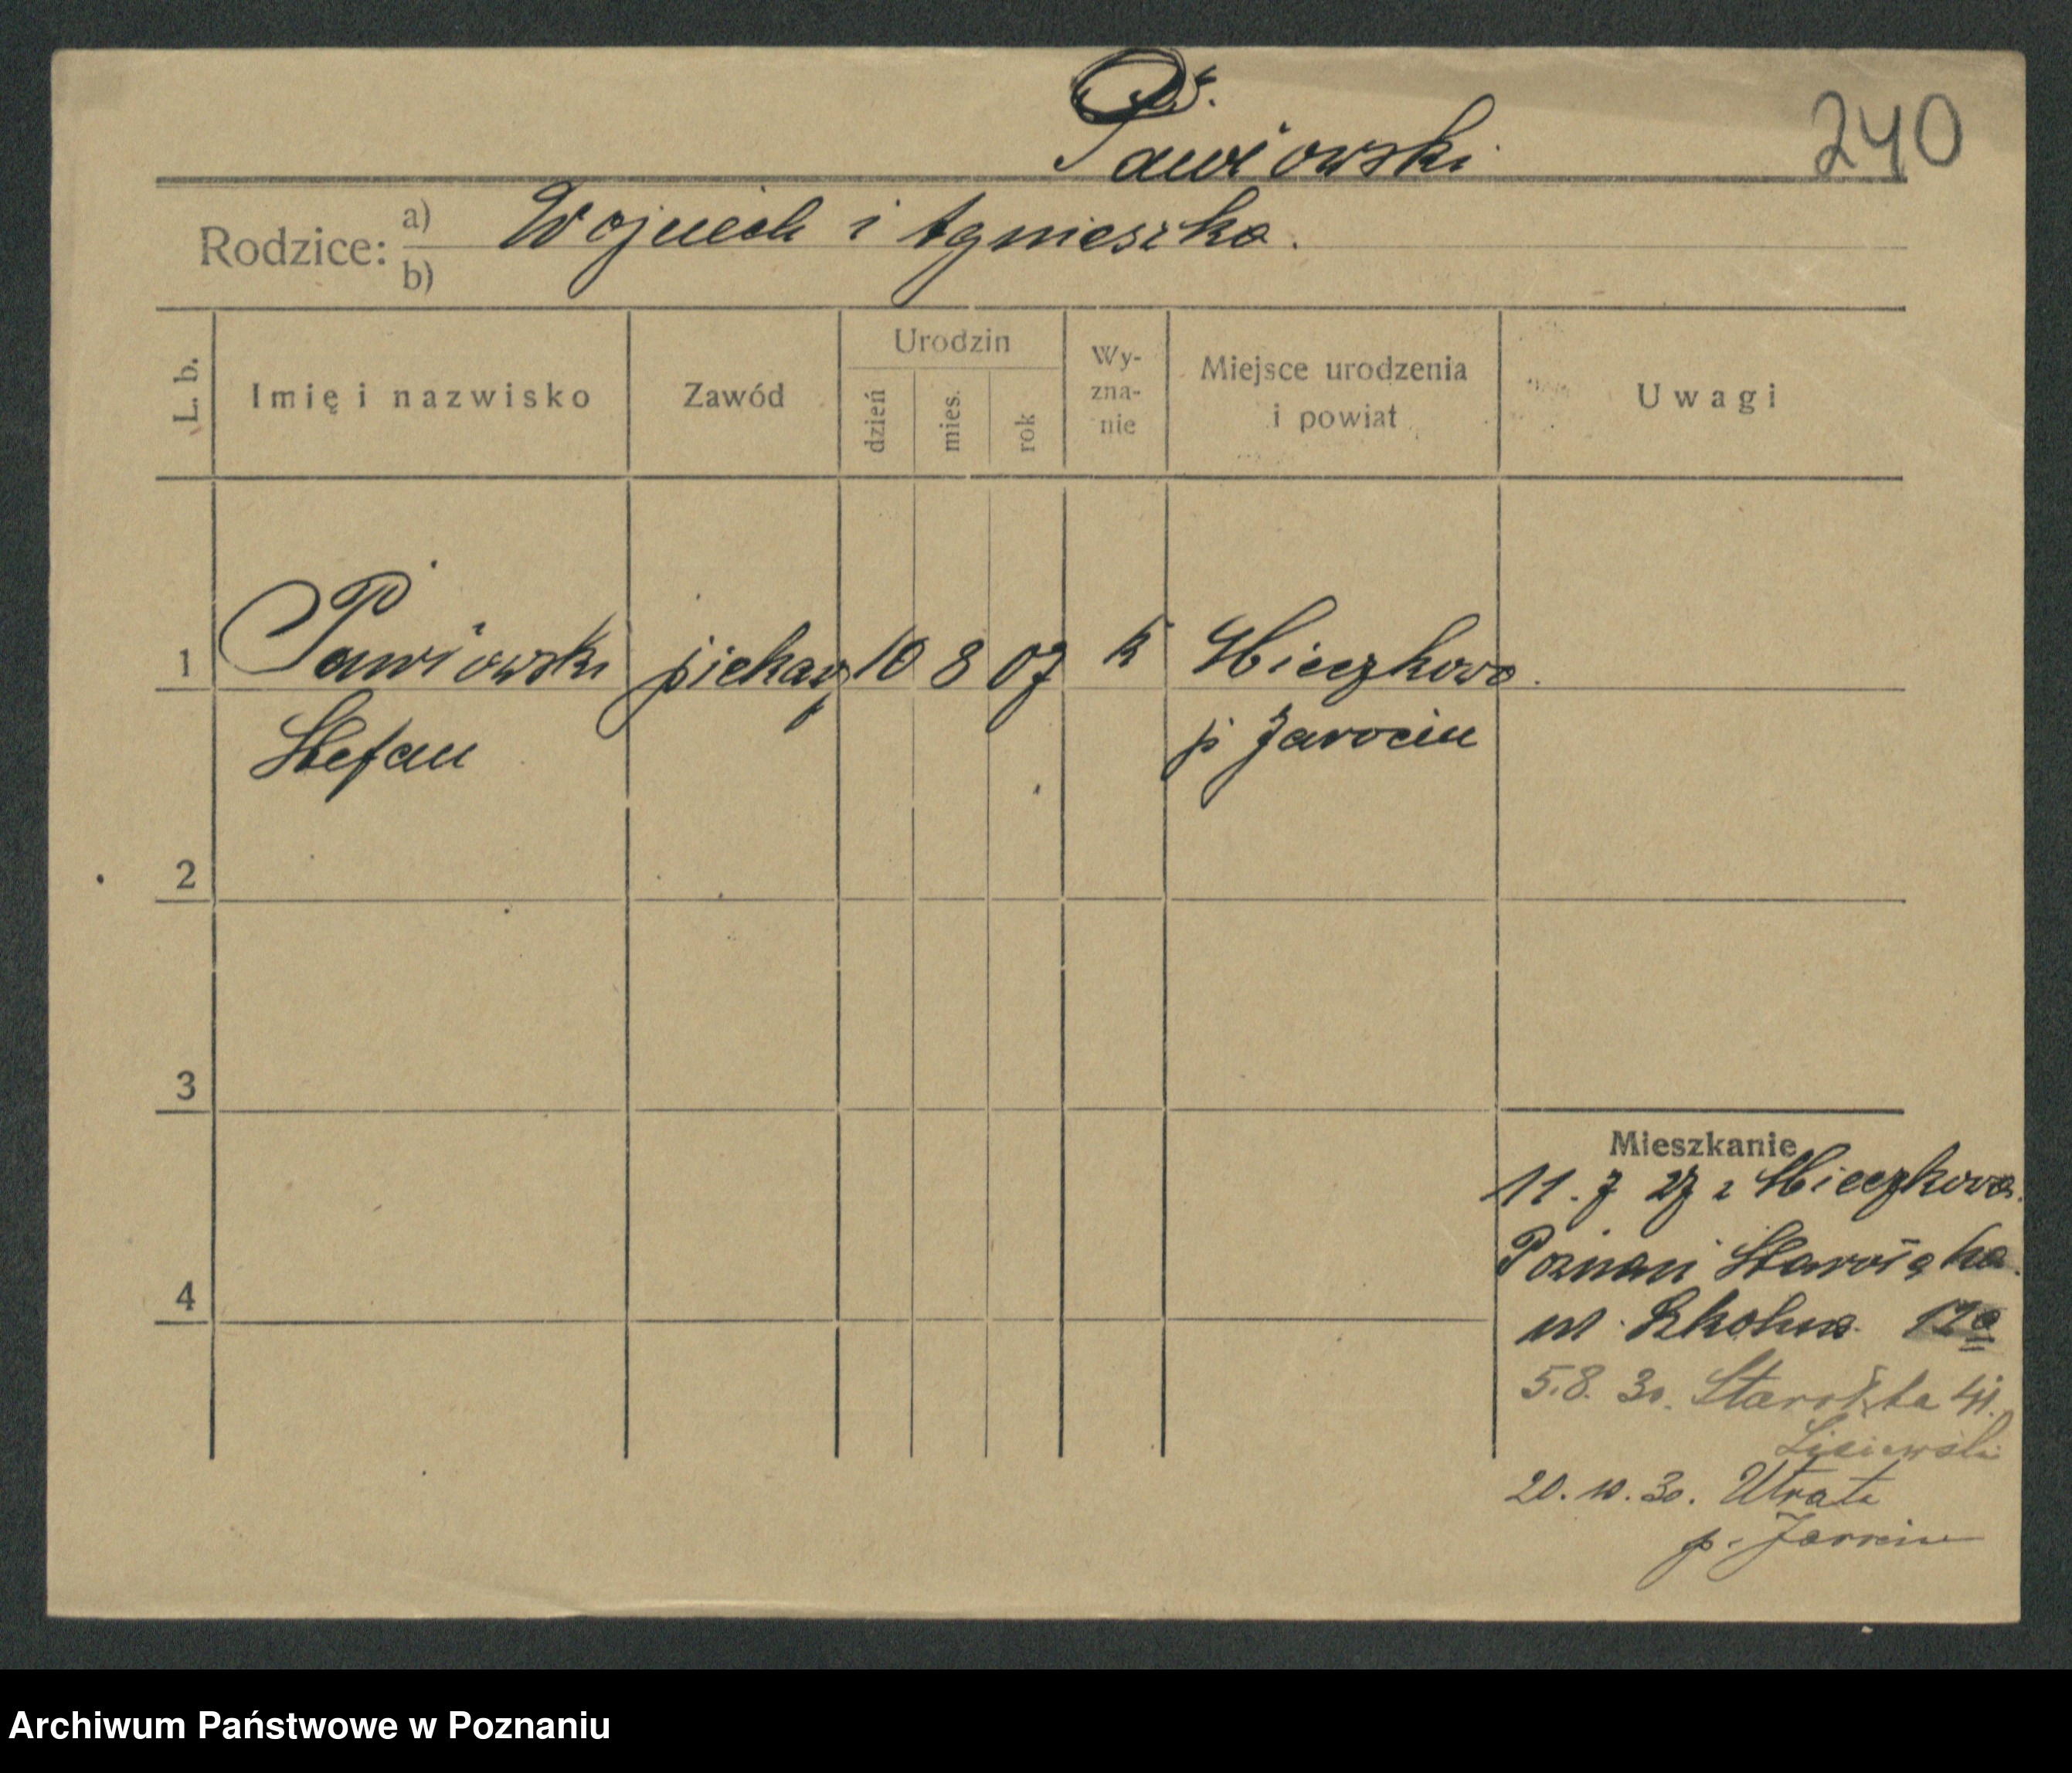 240
Pawłowski
Rodzice: a) Wojciech i Agnieszka.
b)
L. b. Imię i nazwisko Zawód Urodzin dzień mies. rok Wyzna-nie Miejsce urodzenia i powiat Uwagi
1 Pawłowski piekarz 10 8 07 k Mieczkowo.
Stefan p Jarocin
2
3
Mieszkanie
11. 7 27 z Mieczkowa.
Poznań Starołęka.
4
ul. Szkolna 12a
5.8. 30. Starołęka 41.
Lisiewski
20. 10. 30. Utrata
p. Jarocin
Archiwum Państwowe w Poznaniu